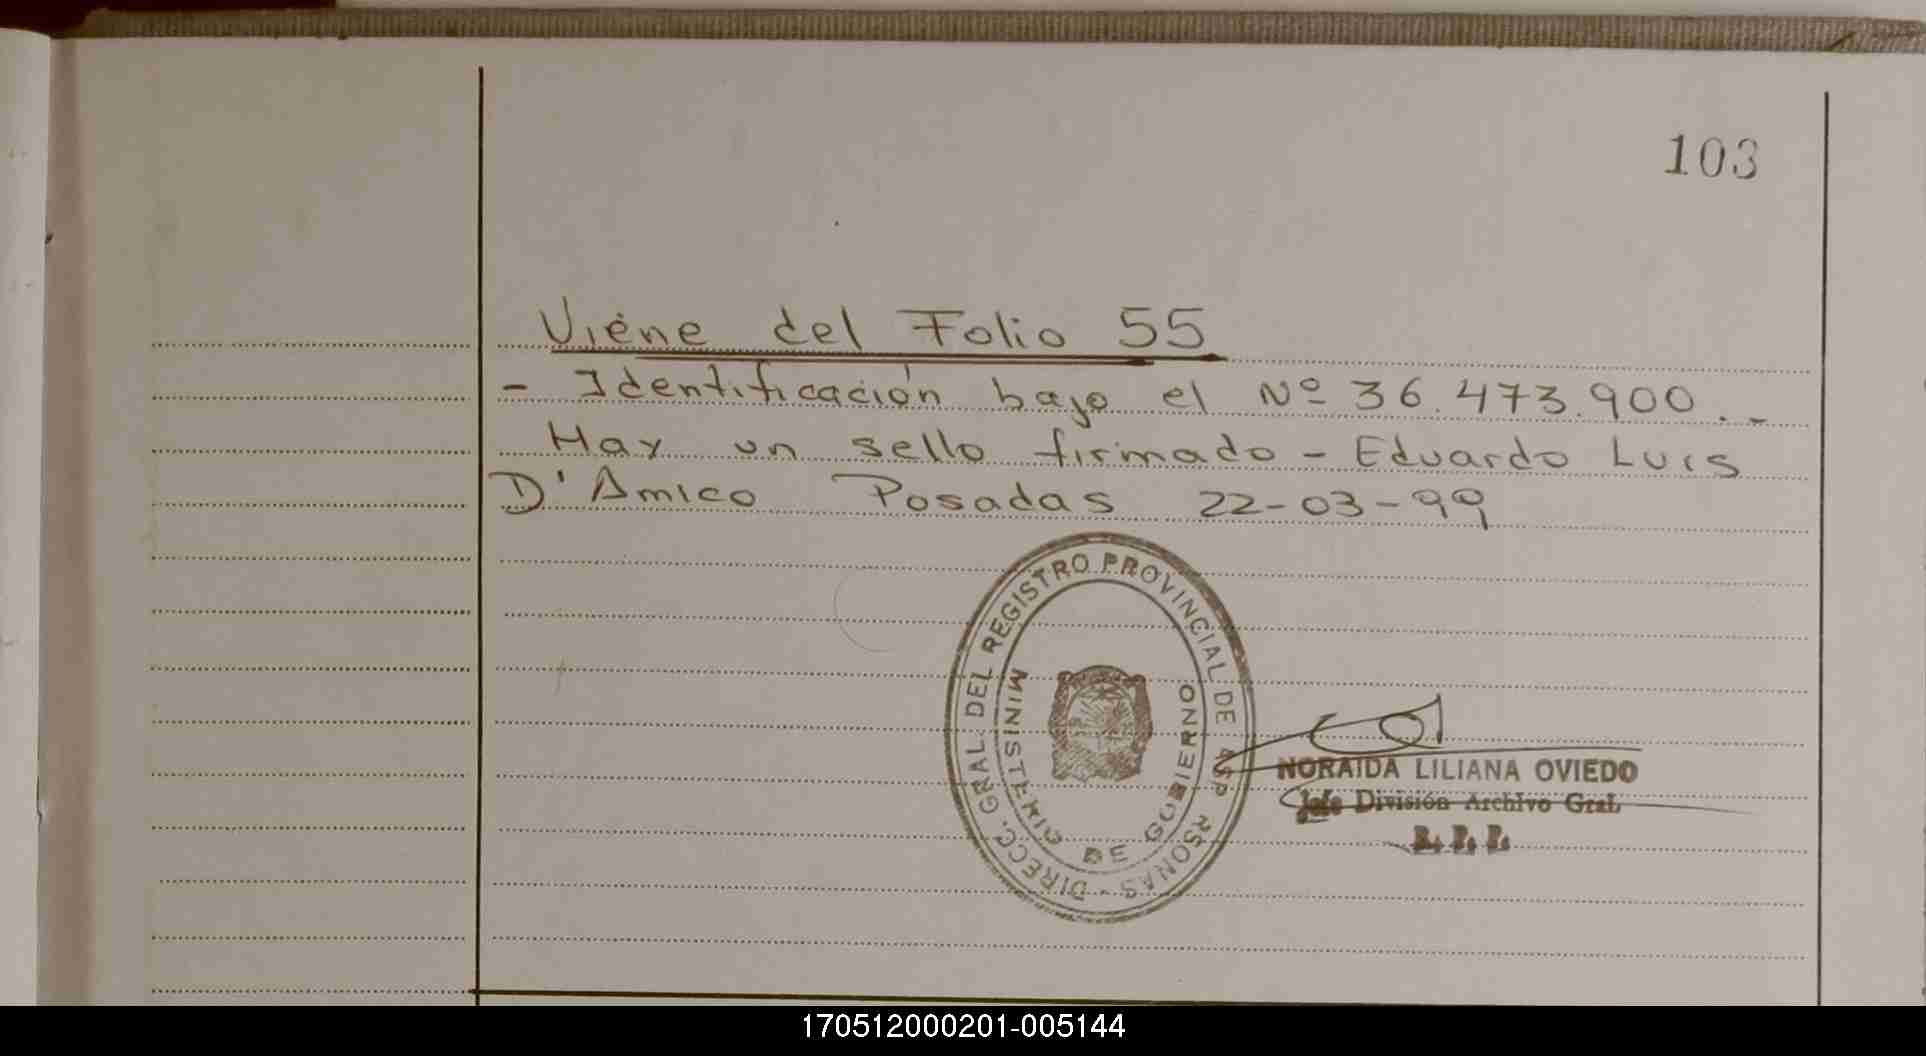 103
Viene del Folio 55
- Identificación bajo el Nº 36.473.900.-
Hay un sello firmado - Eduardo Luis
D'Amico Posadas 22-03-99
DIRECC. GRAL. DEL REGISTRO PROVINCIAL DE
MINISTERIO DE GOBIERNO
NORAIDA LILIANA OVIEDO
Jefe División Archivo Gral.
R. P. P.
170512000201-005144